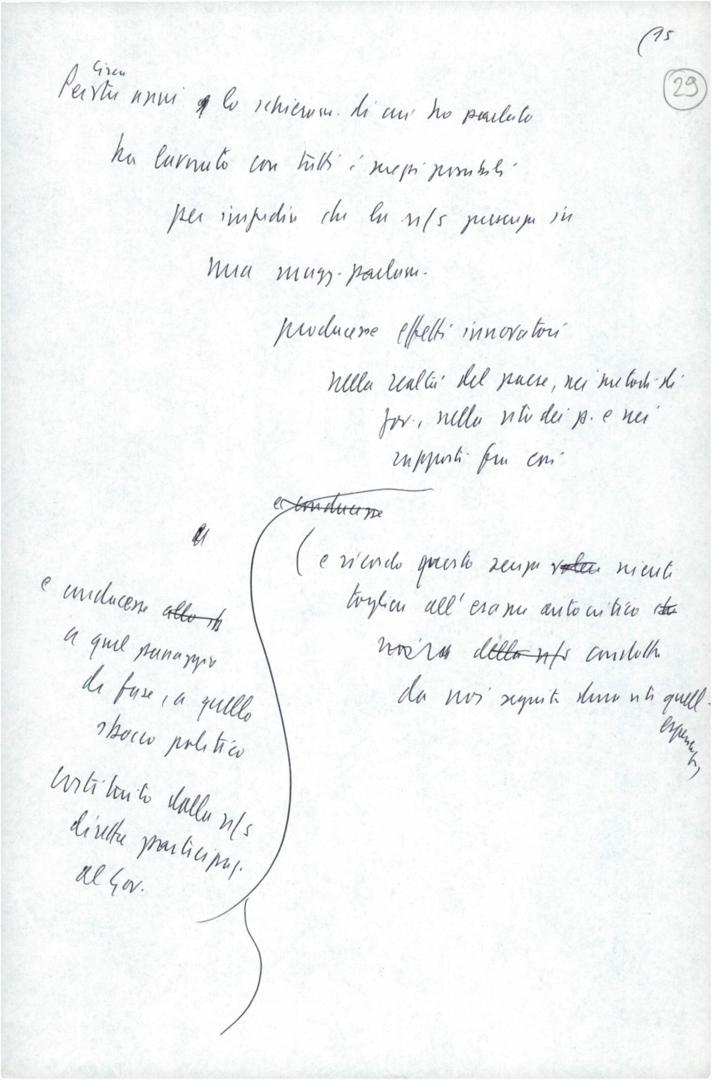 (15
29
circa
Per tre anni lo schieram. di cui ho parlato
ha lavorato con tutti i mezzi possibili
per impedire che la n/s presenza in
una magg. parlam.
producesse effetti innovatori
nella realtà del paese, nei metodi di
gov., nella vita dei p. e nei
rapporti fra essi
e conducesse
e conducesse allo sb
a quel passaggio
di fase, a quello
sbocco politico
costituito dalla n/s
diretta partecipaz.
al Gov.
(e ricordo questo senza voler niente
togliere all'esame autocritico
della n/s condotta
da noi seguita durante quell'
esperienza)